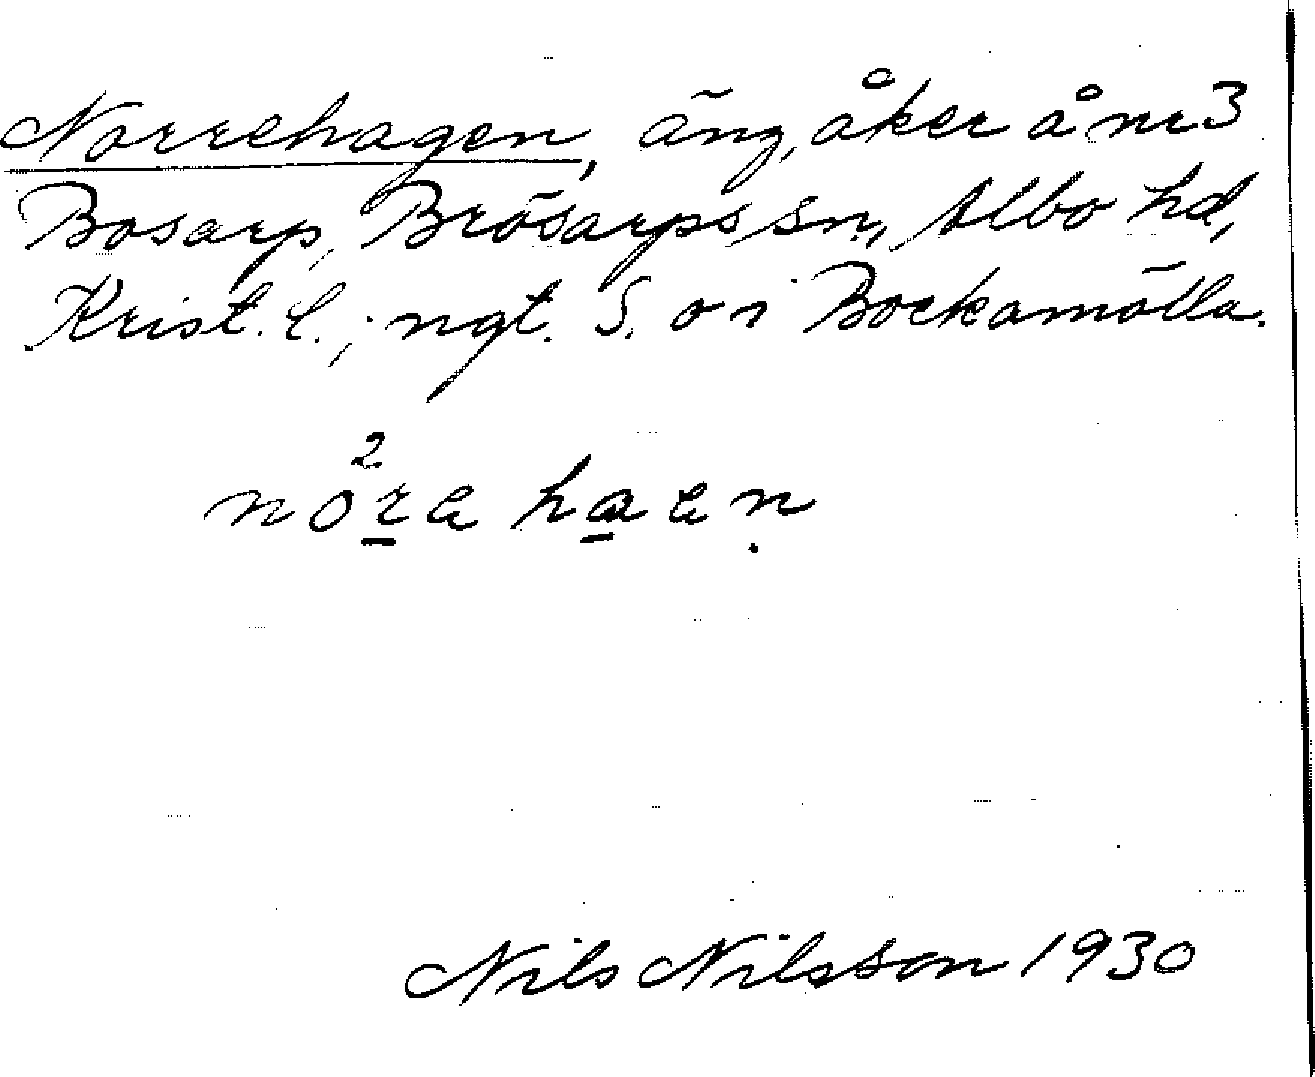 Norrehagen, äng, åker å nr 3
Bosarp, Brösarps sn., Albo hd,
Krist. l.; ngt. S. o i Bockamölla.
2
nöra haan
Nils Nilsson 1930